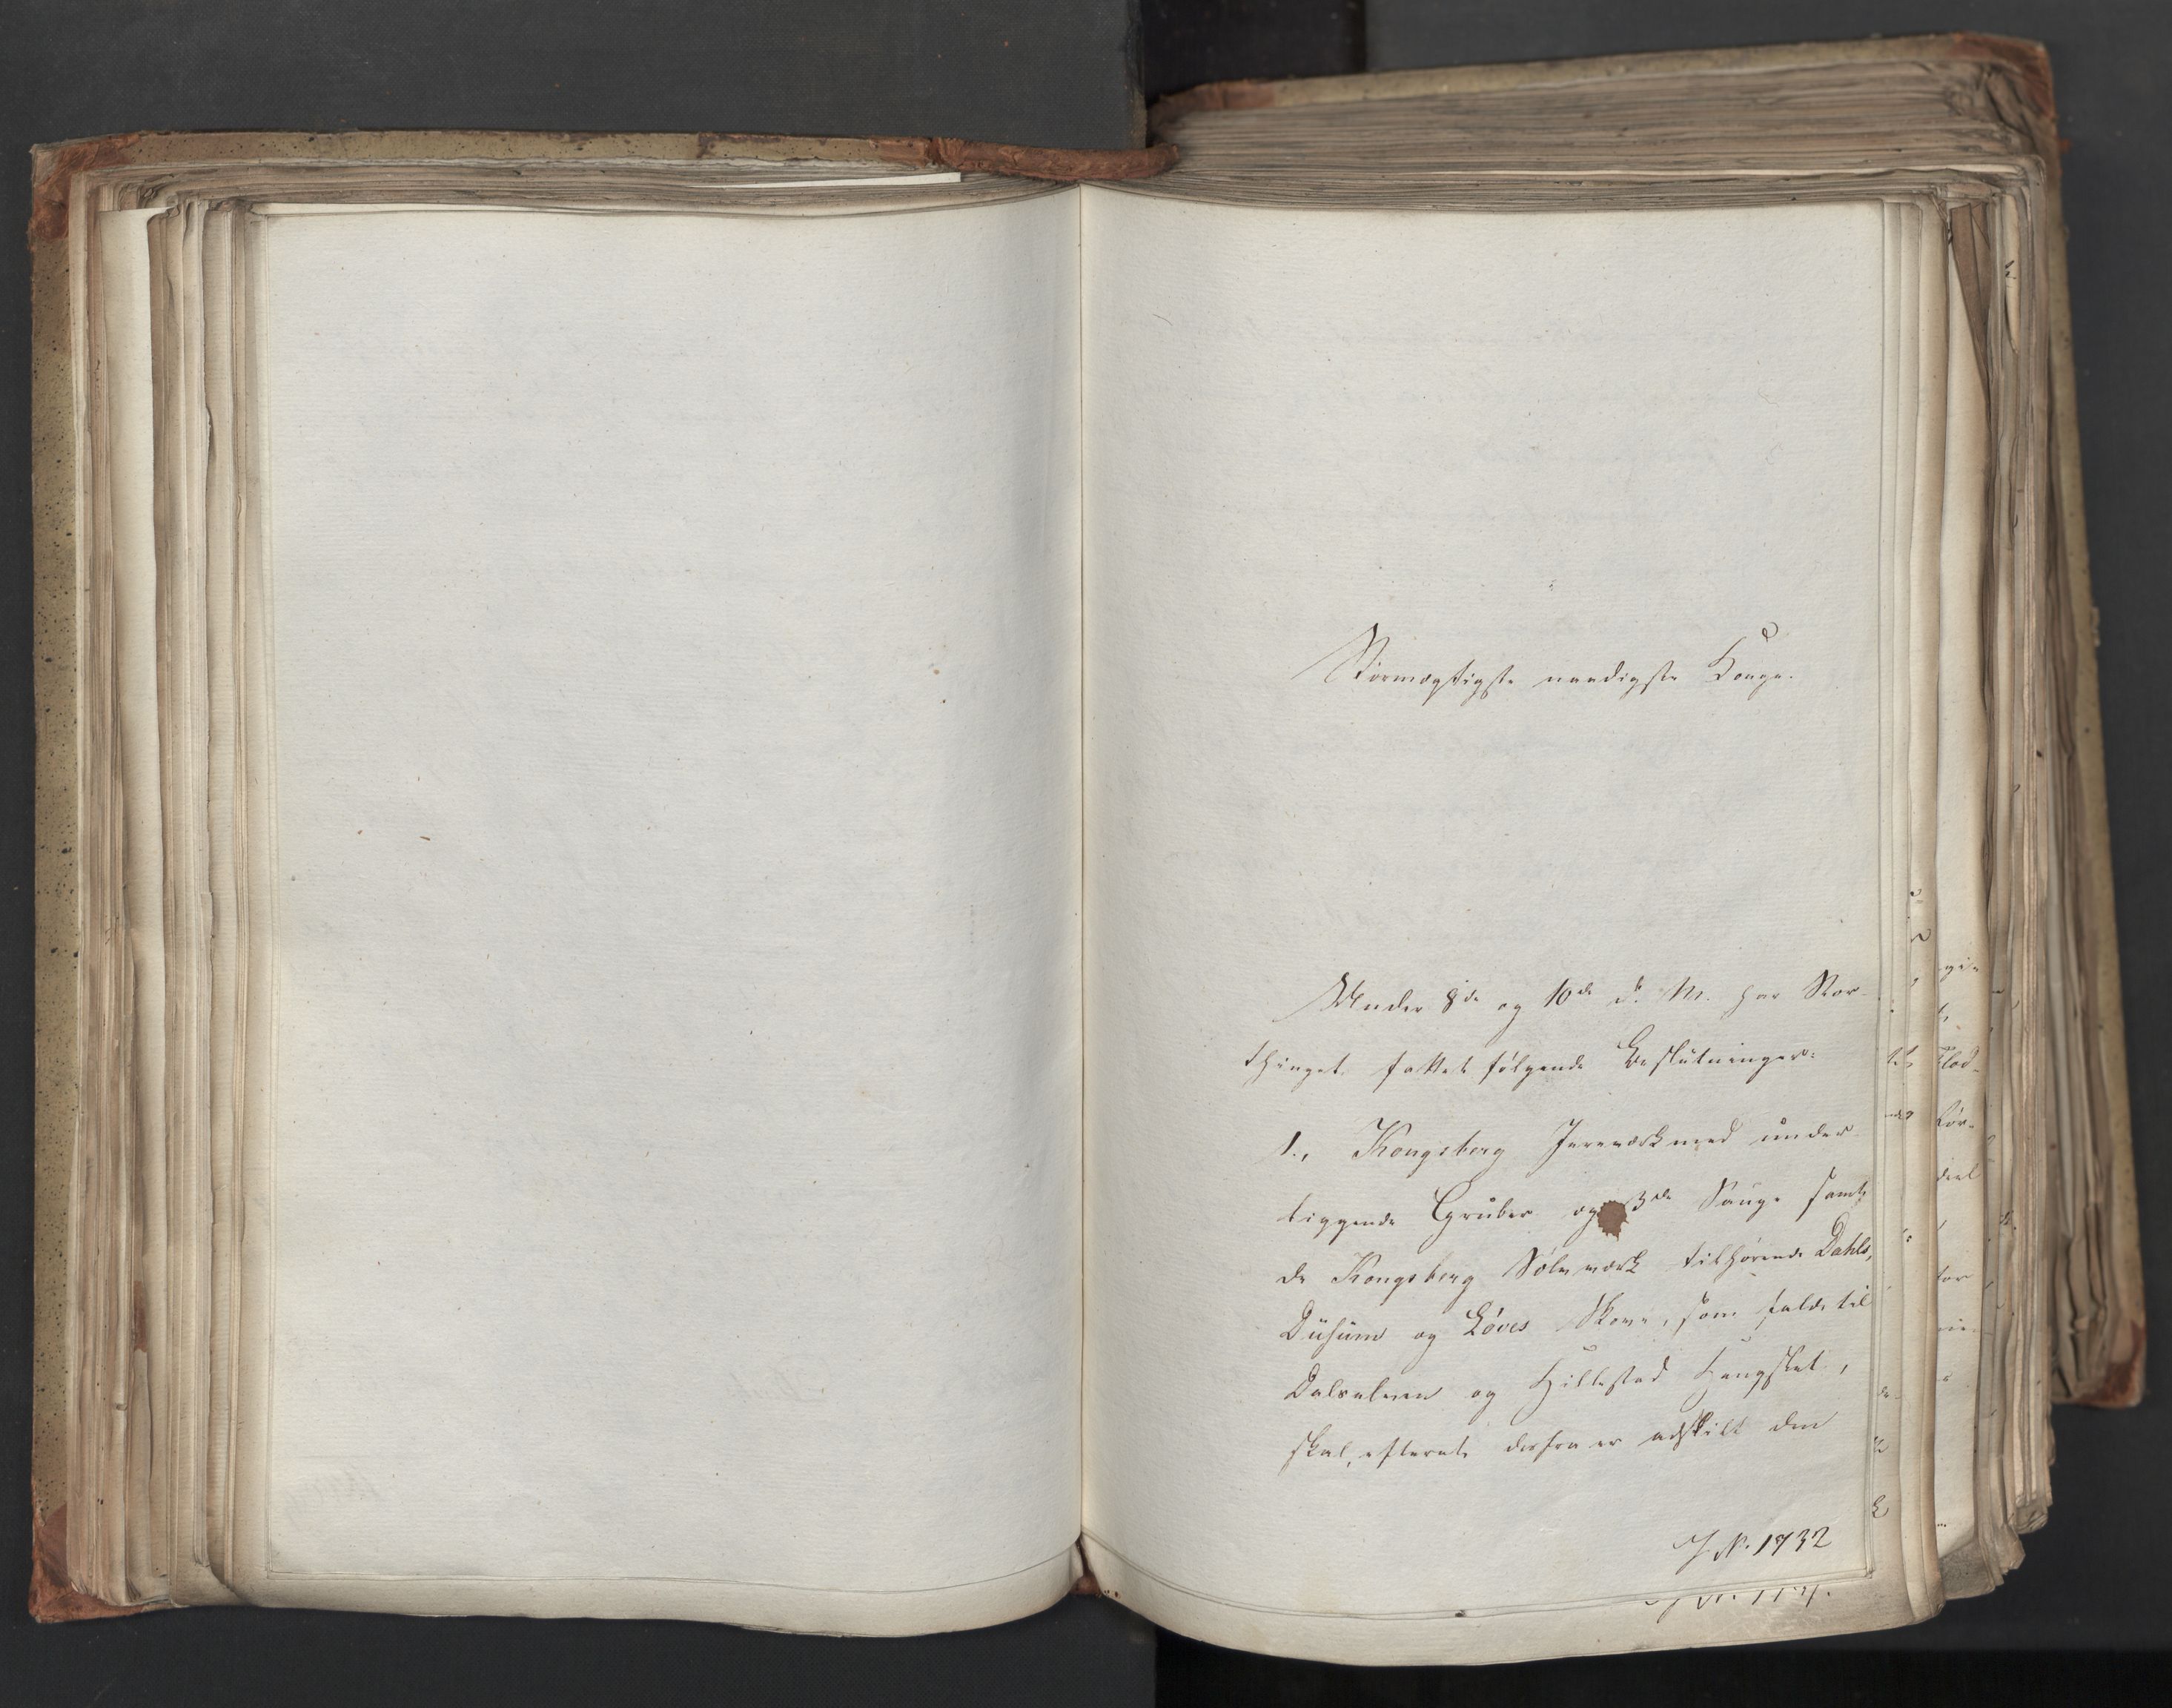 Stormægtigste naadigste Konge.
Under 8de og 10de d. M. har Stor-
thinget fattet følgende Beslutninger:
1., Kongsberg Jernværk med under-
liggende Gruber og 3de Sauge samt
de Kongsberg Sølvværk tilhørende Dahls,
og Løves Skove, som falde til
og Hillestad,
skal, efterat derfra er adskilt den
J. N. 1732